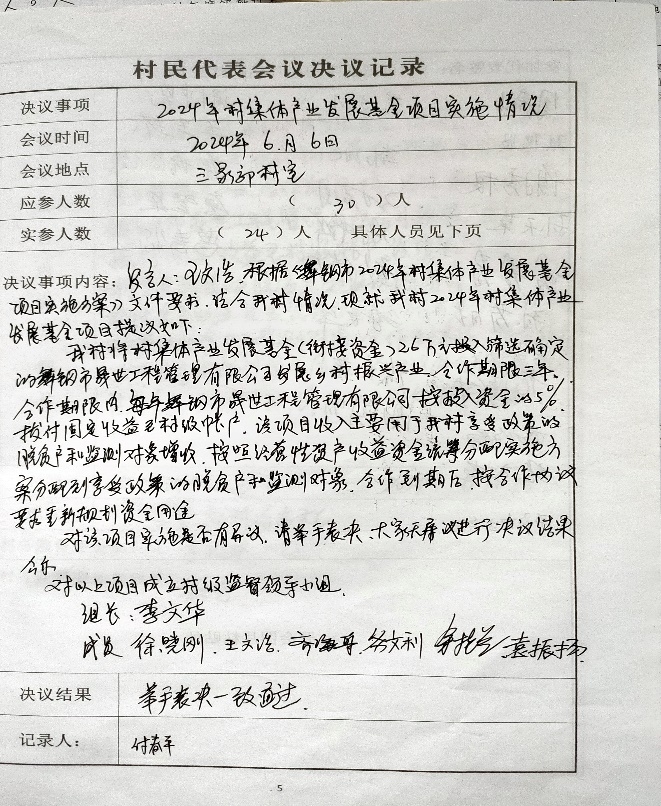 村民代表会议决议记录
决议事项 2024年村集体产业发展基金项目实施情况
会议时间 2024年6月6日
会议地点 三家部村室
应参人数 （30）人
实参人数 （24）人 具体人员见下页
决议事项内容：发言人：王文浩，根据《舞钢市2024年村集体产业发展基金
项目实施方案》文件要求，结合我村情况，现就我村2024年村集体产业
发展基金项目提议如下：
我村将村集体产业发展基金（衔接资金）26万元投入筛选确定
的舞钢市晟世工程管理有限公司发展乡村振兴产业，合作期限三年，
合作期限内，每年舞钢市晟世工程管理有限公司按投入资金的5%
拨付固定收益至村级帐户，该项目收入主要用于我村享受政策的
脱贫户和监测对象增收，按照经营性资产收益资金统筹分配实施方
案分配到享受政策的脱贫户和监测对象，合作到期后，按合作协议
要求重新规划资金用途
对该项目实施是否有异议，请举手表决，大家无异议进行决议结果
公示
对以上项目成立村级监督领导小组，
组长：李文华
成员 徐晓刚，王文浩，袁振扬
决议结果 举手表决一致通过.
记录人： 付春平
5